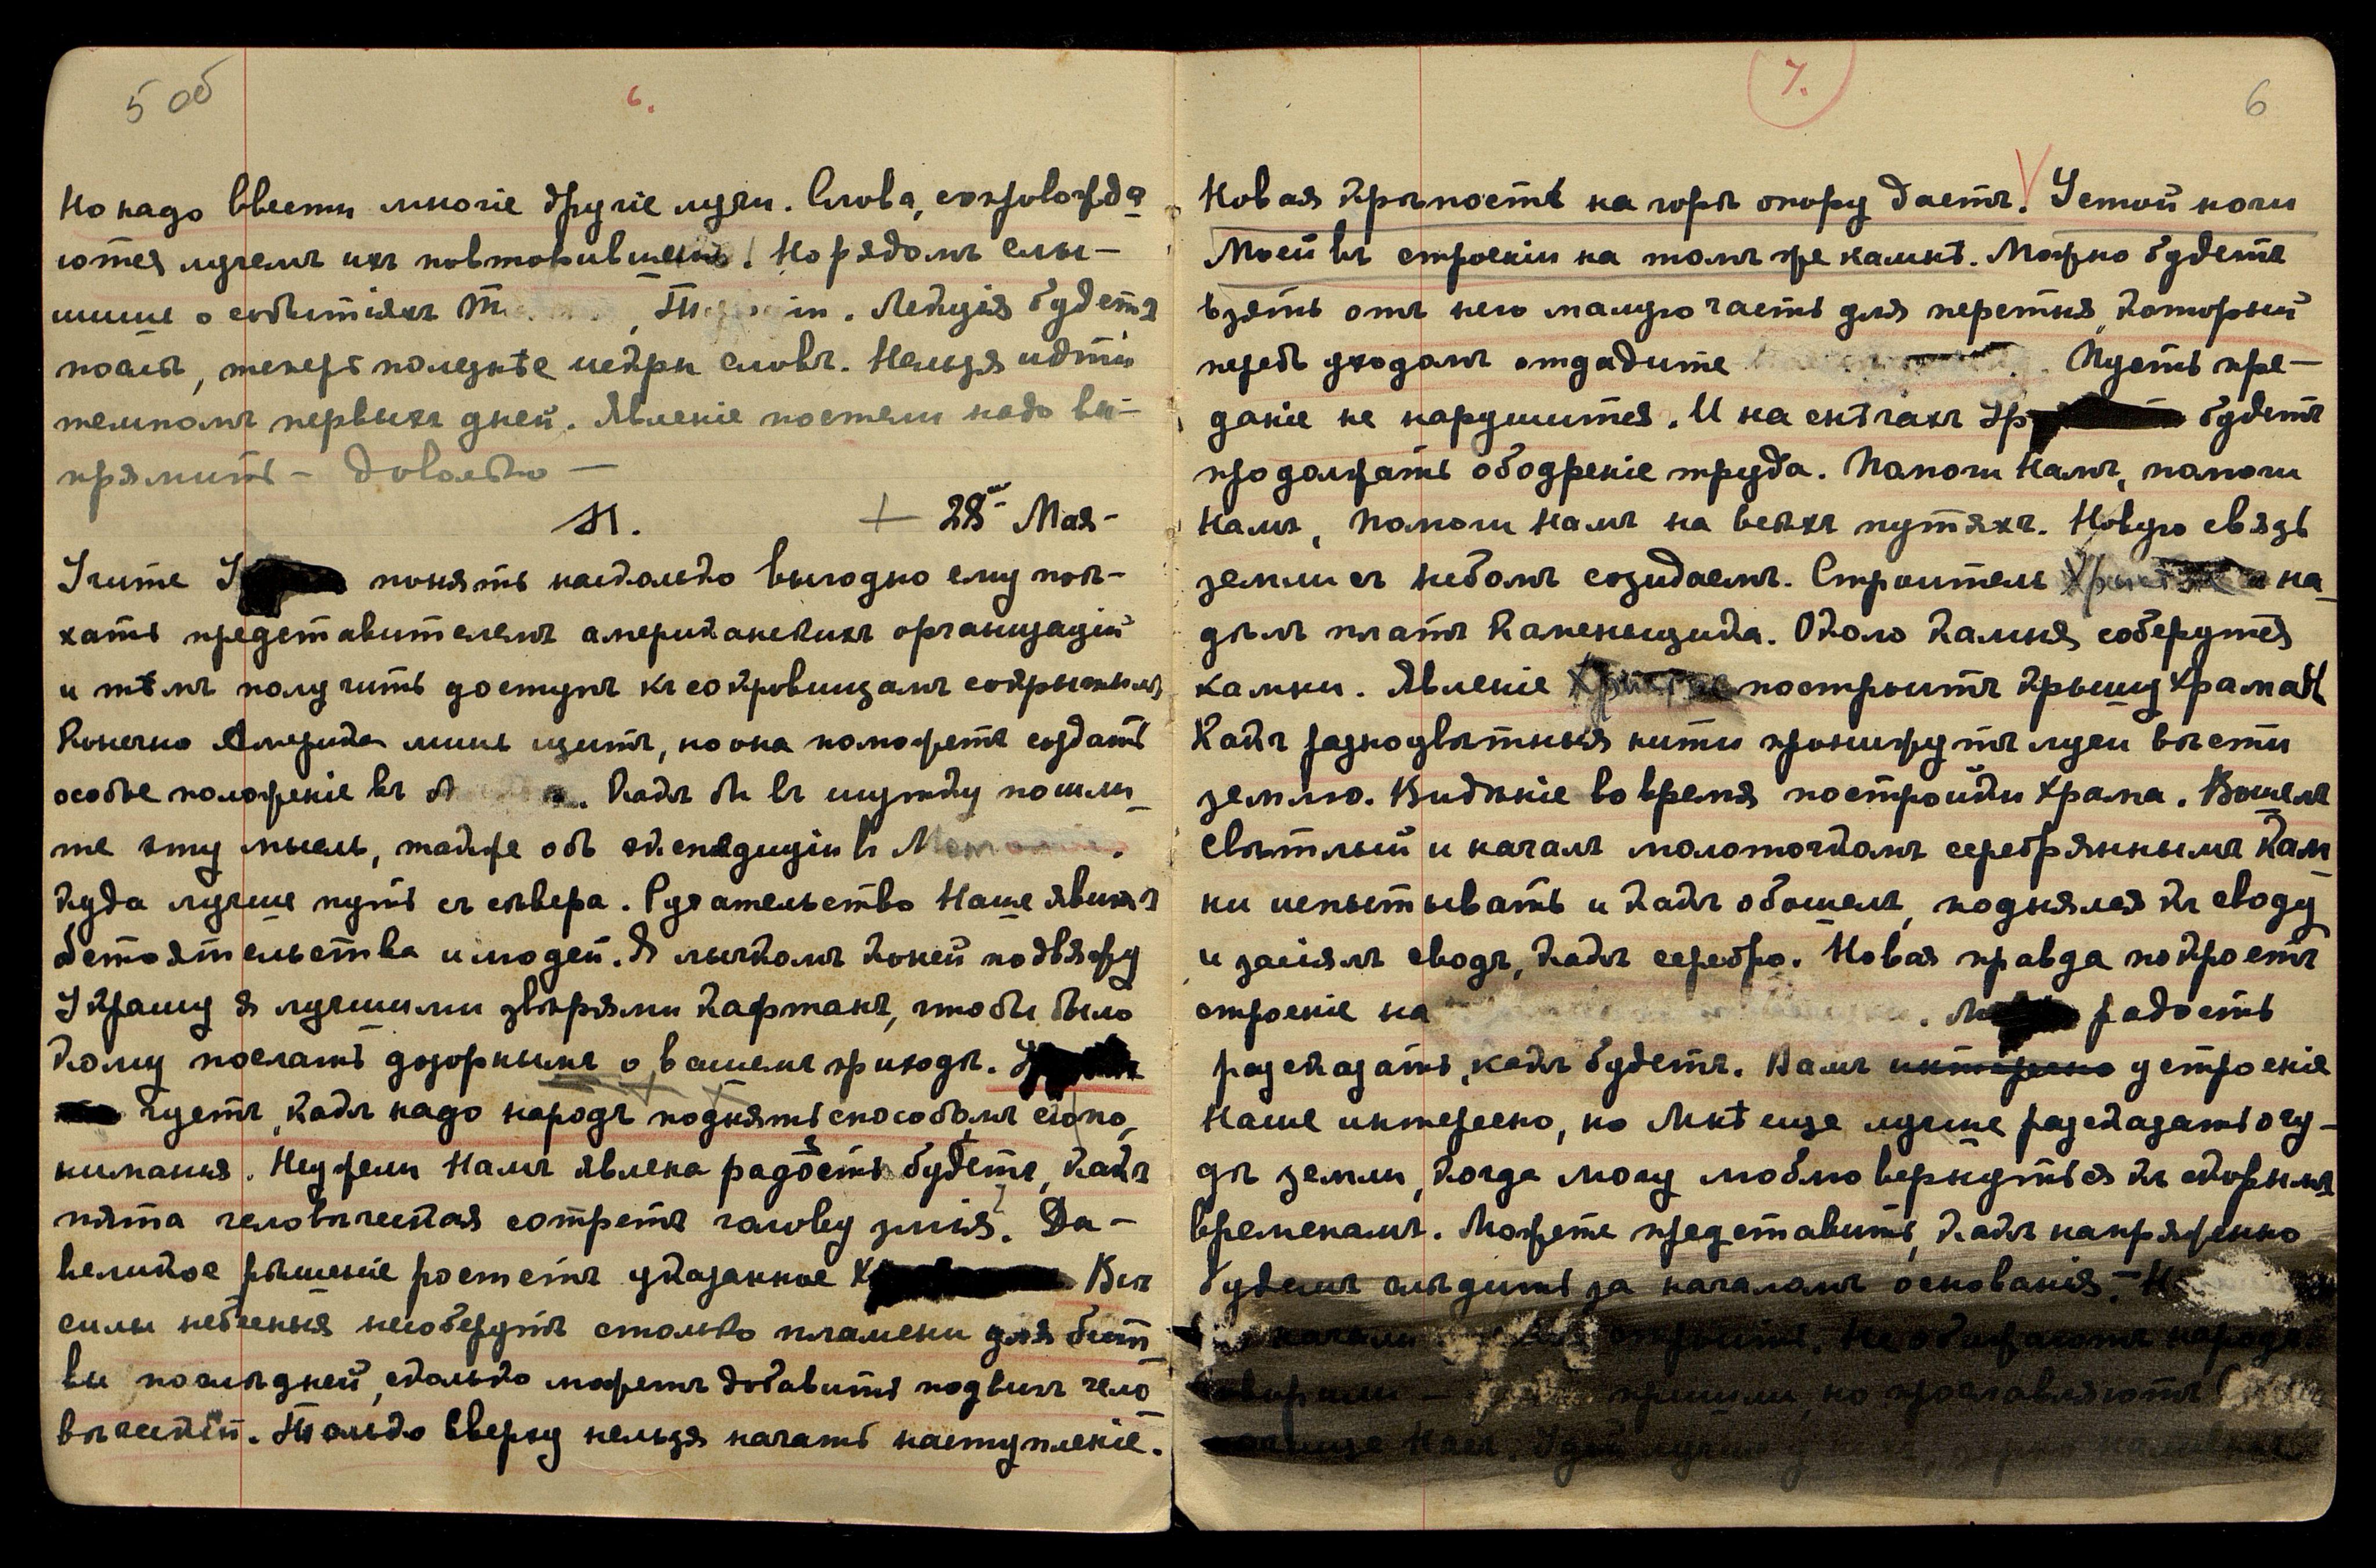 5 об
6.
Но надо ввести многіе другіе лучи. Слова, сопровожда
ются лучемъ ихъ повторившемъ! Но рядомъ слы-
шиш о событіяхъ. Лекція будетъ
послѣ, теперь полезнѣе искры словъ. Нельзя идти
темпомъ первыхъ дней. Явленіе постели надо вы-
прямить - довольно -
М. + 28ое Мая -
Учите понять насколько выгодно ему поѣ-
хать представителемъ американскихъ организацій
и тѣмъ получить доступъ къ сокровищамъ сокрытымъ
Конечно Америка лишь щитъ, но она поможетъ создать
особое положеніе въ. Какъ бы въ шутку пошли
те эту мысль, также объ экспедиціи въ
Куда лучше путь съ сѣвера. Ручательство Наше явимъ
обстоятельства и людей. Я лычкомъ коней подвяжу
Украшу я лучшими звѣрями кафтанъ, чтобы было
кому послать дозорнымъ о вашемъ приходѣ.
чуетъ, какъ надо народъ поднять способомъ его по
ниманья. Неужели Намъ явлена радость будетъ, какъ
пята человѣческая сотретъ голову змія. Да -
великое рѣшеніе ростетъ указанное Всѣ
силы небесныя несоберутъ столько пламени для бит
вы послѣдней, сколько можетъ добавить подвигъ чело
вѣческій. Только сверху нельзя начать наступленіе.
7.
6
Новая крѣпость на горѣ опору даетъ. Устой ночи
Моей въ строеніи на томъ же камнѣ. Можно будетъ
взять отъ него малую часть для перстня, который
передъ уходомъ отдадите. Пусть пре-
даніе не нарушится. И на снѣгахъ будетъ
продолжать ободреніе труда. Помоги Намъ, помоги
Намъ, помоги Намъ на всѣхъ путяхъ. Новую связь
земли съ небомъ созидаемъ. Строитель на
дѣлъ платъ Каменьщика. Около Камня соберутся
камни. Явленіе построитъ крышу Храма
Какъ разноцвѣтныя нити пронижутъ лучи вѣсти
землю. Видѣніе во время постройки Храма. Вошелъ
Свѣтлый и началъ молоточкомъ серебряннымъ кам
ни испытывать и какъ обошелъ, поднялся къ своду
и засіялъ сводъ, какъ серебро. Новая правда покроетъ
строеніе на. радость
разсказать, какъ будетъ. Вамъ интересно устроеніе
Наше интересно, но Мнѣ еще лучше разсказать о чу-
дѣ земли, когда могу мыслью вернуться къ скорымъ
временамъ. Можете представить, какъ напряженно
будемъ слѣдить за началомъ основанія. -
начали. Не обижаютъ народъ
говорили - пришли, но прославляютъ